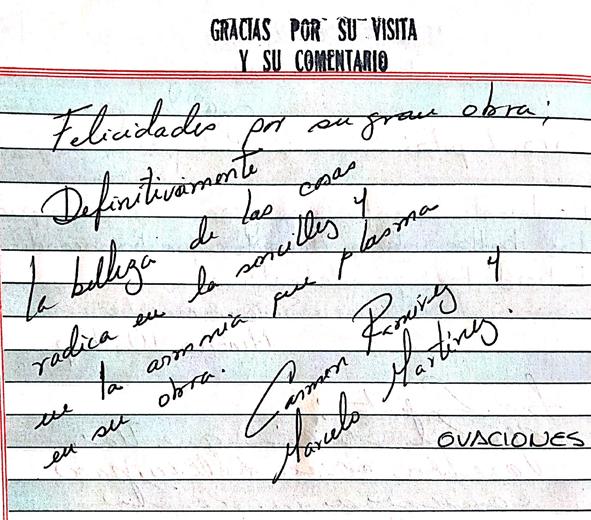 GRACIAS POR SU VISITA
Y SU COMENTARIO
Felicidades por su gran obra;
Definitivamente
La belleza de las cosas
radica en la sencilles y
en la armonia que plasma
en su obra.
Carmen Ramirez y
Marcelo Martinez.
OVACIONES